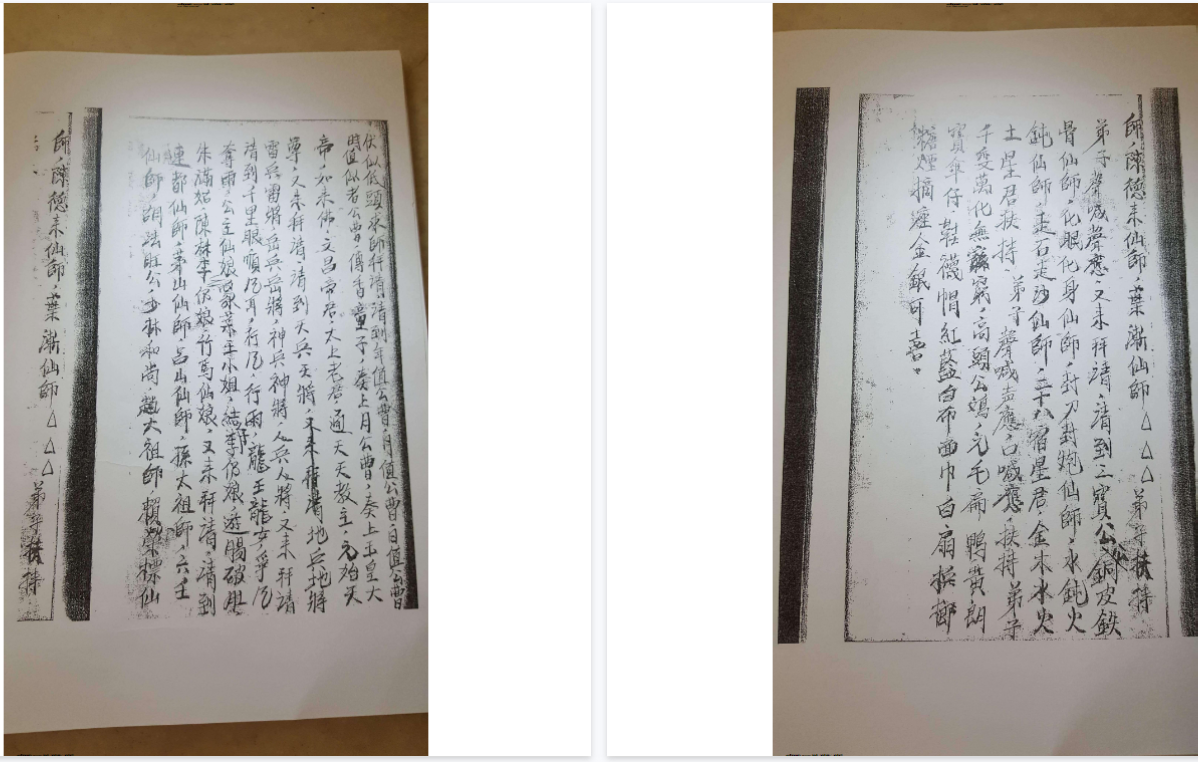 伏似低頭來師拜請請到年值公曹月值公曹日值公曹
時值似者公曹傳香童子奏上月公曹奏上玉皇大
帝如來佛文昌帝君太上老君通天天教主元始天
尊又來拜請請到天兵天將又來拜請地兵地將
雷兵雷將岳兵岳將神兵神將人兵人將又來拜請
請到千里眼順風耳行風行雨龍王龍女爭風
奪雨公主仙娘家菜主小姐結仔娘透腸破肚
朱滿姑陳林李伏娘竹馬仙娘又來拜請請到
連都仙師茅山仙師呂山仙師孫大祖師六壬
仙師胡法旺公少林和尚趙大祖師賴標仙
師陳德來仙師葉漸仙師△△△弟子扶持
師陳德來仙師葉漸仙師△△△弟子扶持
弟子聲喊聲應又來拜請請到三寶公銅皮鉄
骨仙師化眼化身仙師封刀封炮仙師水鈍火
鈍仙師走石走沙仙師二十八宿星君金木水火
土星君扶持弟子聲喊声應口喊應扶持弟子
千变萬化無窮高頭公鴉元毛扁鴨黄朗
寶傘仔鞋襪帽紅藍白布面巾白扇檳榔
糍煙摘壢金銀可壹